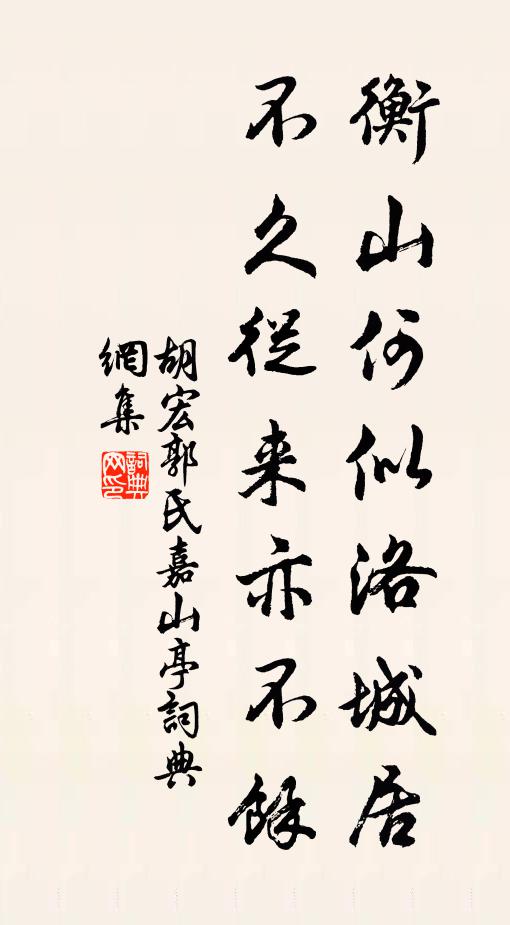 衡山何似洛城居
不久從来亦不餘
胡宏郭氏嘉山亭詞典
網集
詞典網印